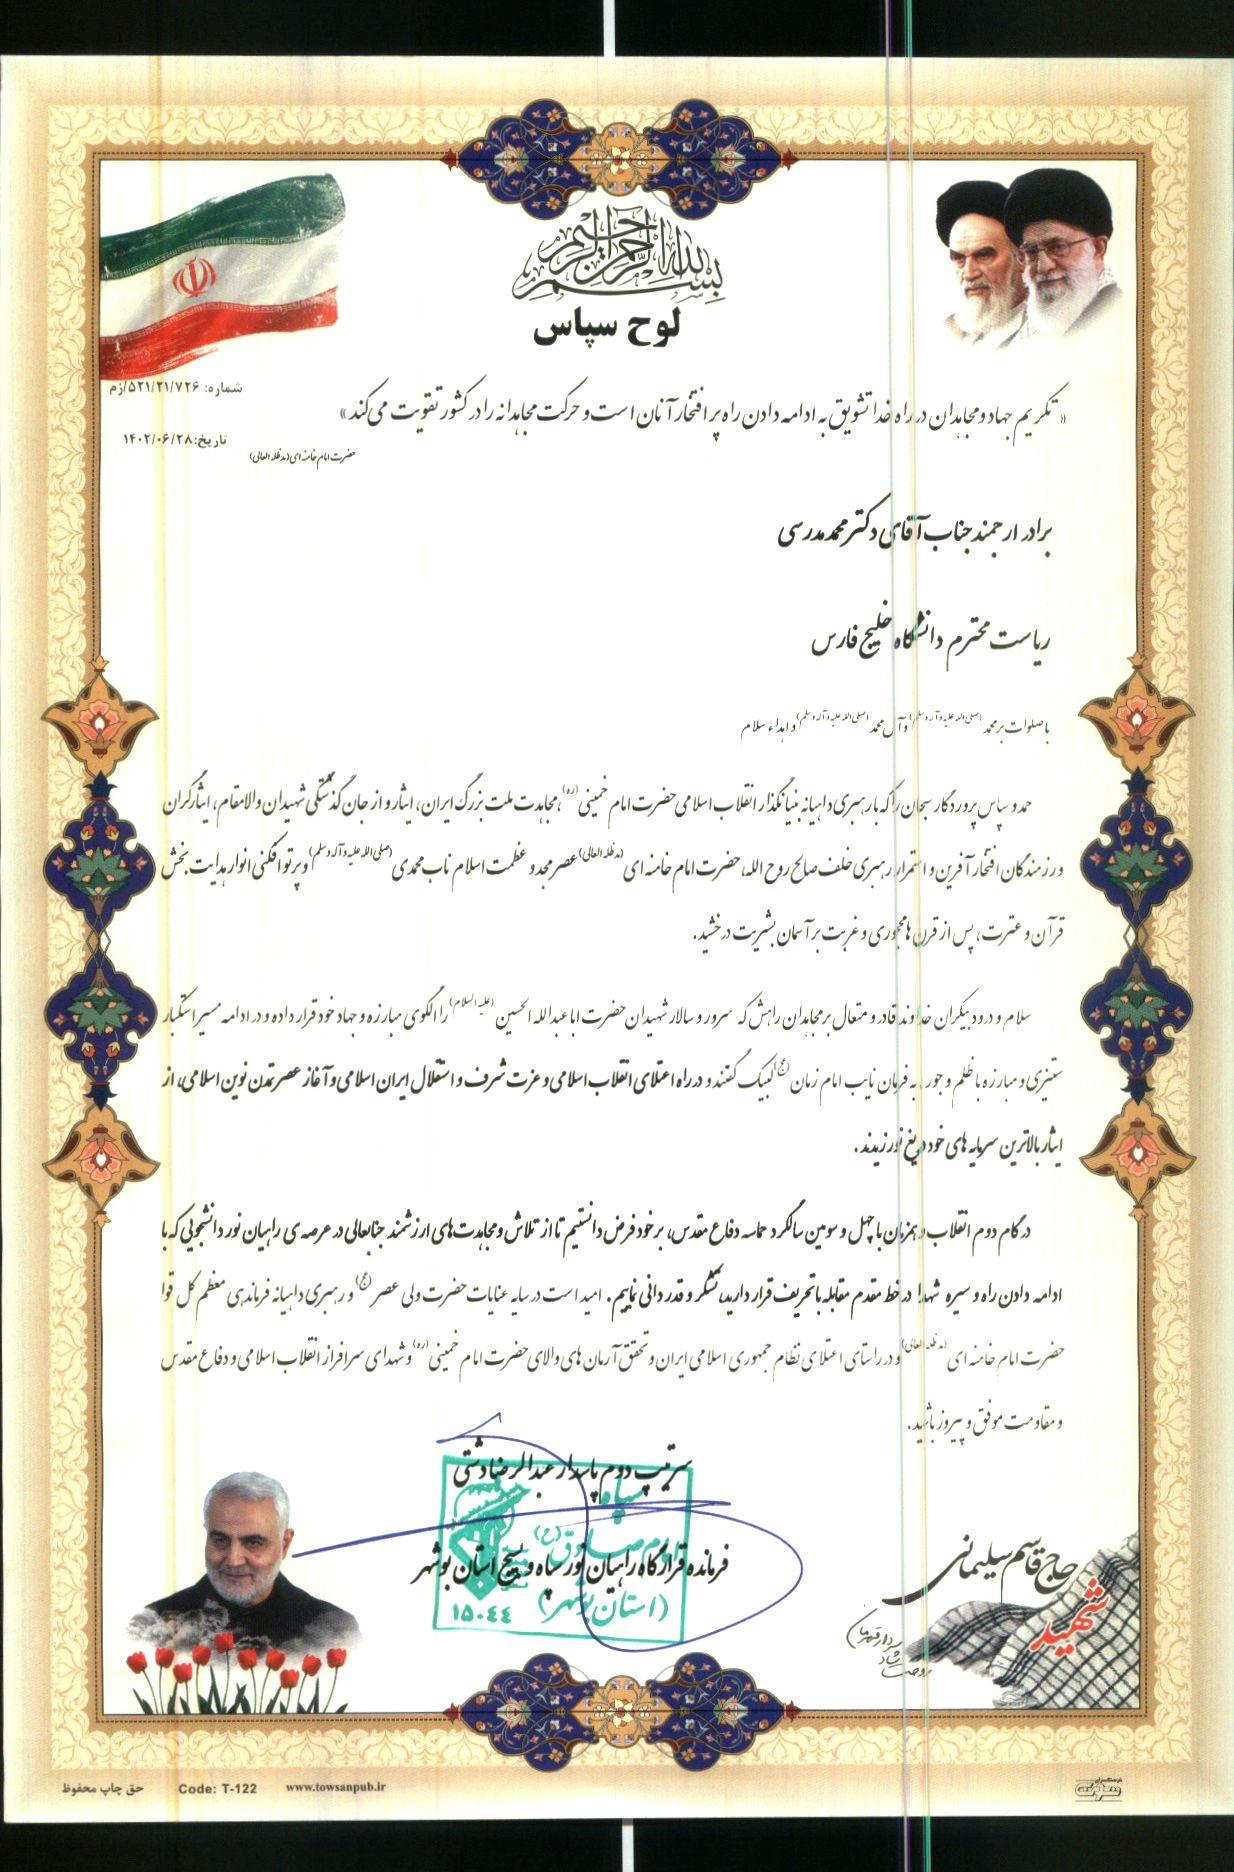 بسم الله الرحمن الرحیم
لوح سپاس
شماره: ۵۲۱/۲۱/۷۲۶/زم
« تکریم جهاد و مجاهدان در راه خدا تشویق به ادامه دادن راه پر افتخار آنان است و حرکت مجاهدانه را در کشور تقویت می کند »
تاریخ: ۱۴۰۲/۰۶/۲۸
حضرت امام خامنه ای (مدظله العالی)
برادر ارجمند جناب آقای دکتر محمد مدرسی
ریاست محترم دانشگاه خلیج فارس
با صلوات بر محمد (صلی الله علیه و آله وسلم) و آل محمد (صلی الله علیه و آله وسلم) و اهداء سلام
حمد و سپاس پروردگار سبحان را که با رهبری داهیانه بنیانگذار انقلاب اسلامی حضرت امام خمینی (ره)، مجاهدت ملت بزرگ ایران، ایثار و از جان گذشتگی شهیدان والامقام، ایثارگران
و رزمندگان افتخار آفرین و استمرار رهبری خلف صالح روح الله، حضرت امام خامنه ای (مدظله العالی) عصر مجد و عظمت اسلام ناب محمدی (صلی الله علیه و آله وسلم) و پرتو افکنی انوار هدایت بخش
قرآن و عترت، پس از قرن ها مهجوری و غربت بر آسمان بشریت درخشید.
سلام و درود بیکران خداوند قادر و متعال بر مجاهدان راهش که سرور و سالار شهیدان حضرت اباعبدالله الحسین (علیه السلام) را الگوی مبارزه و جهاد خود قرار داده و در ادامه مسیر استکبار
ستیزی و مبارزه با ظلم و جور، به فرمان نایب امام زمان (عج) لبیک گفتند و در راه اعتلای انقلاب اسلامی و عزت شرف و استقلال ایران اسلامی و آغاز عصر تمدن نوین اسلامی، از
ایثار بالاترین سرمایه های خود دریغ نورزیدند.
در گام دوم انقلاب و همزمان با چهل و سومین سالگرد حماسه دفاع مقدس، بر خود فرض دانستیم تا از تلاش و مجاهدت های ارزشمند جنابعالی در عرصه ی راهیان نور دانشجویی که با
ادامه دادن راه و سیره شهدا در خط مقدم مقابله با تحریف قرار دارید، تشکر و قدردانی نماییم. امید است در سایه عنایات حضرت ولی عصر (عج) و رهبری داهیانه فرماندهی معظم کل قوا
حضرت امام خامنه ای (مدظله العالی) و در راستای اعتلای نظام جمهوری اسلامی ایران و تحقق آرمان های والای حضرت امام خمینی (ره) و شهدای سرافراز انقلاب اسلامی و دفاع مقدس
و مقاومت موفق و پیروز باشید.
سرتیپ دوم پاسدار عبدالرضا دشتی
سپاه
امام صادق (ع)
فرمانده قرارگاه راهیان نور سپاه و بسیج استان بوشهر
(استان بوشهر)
۱۵۰۴۴
شهید
حاج قاسم سلیمانی
سردار قهرمان
روحت شاد
حق چاپ محفوظ
Code: T-122
www.towsanpub.ir